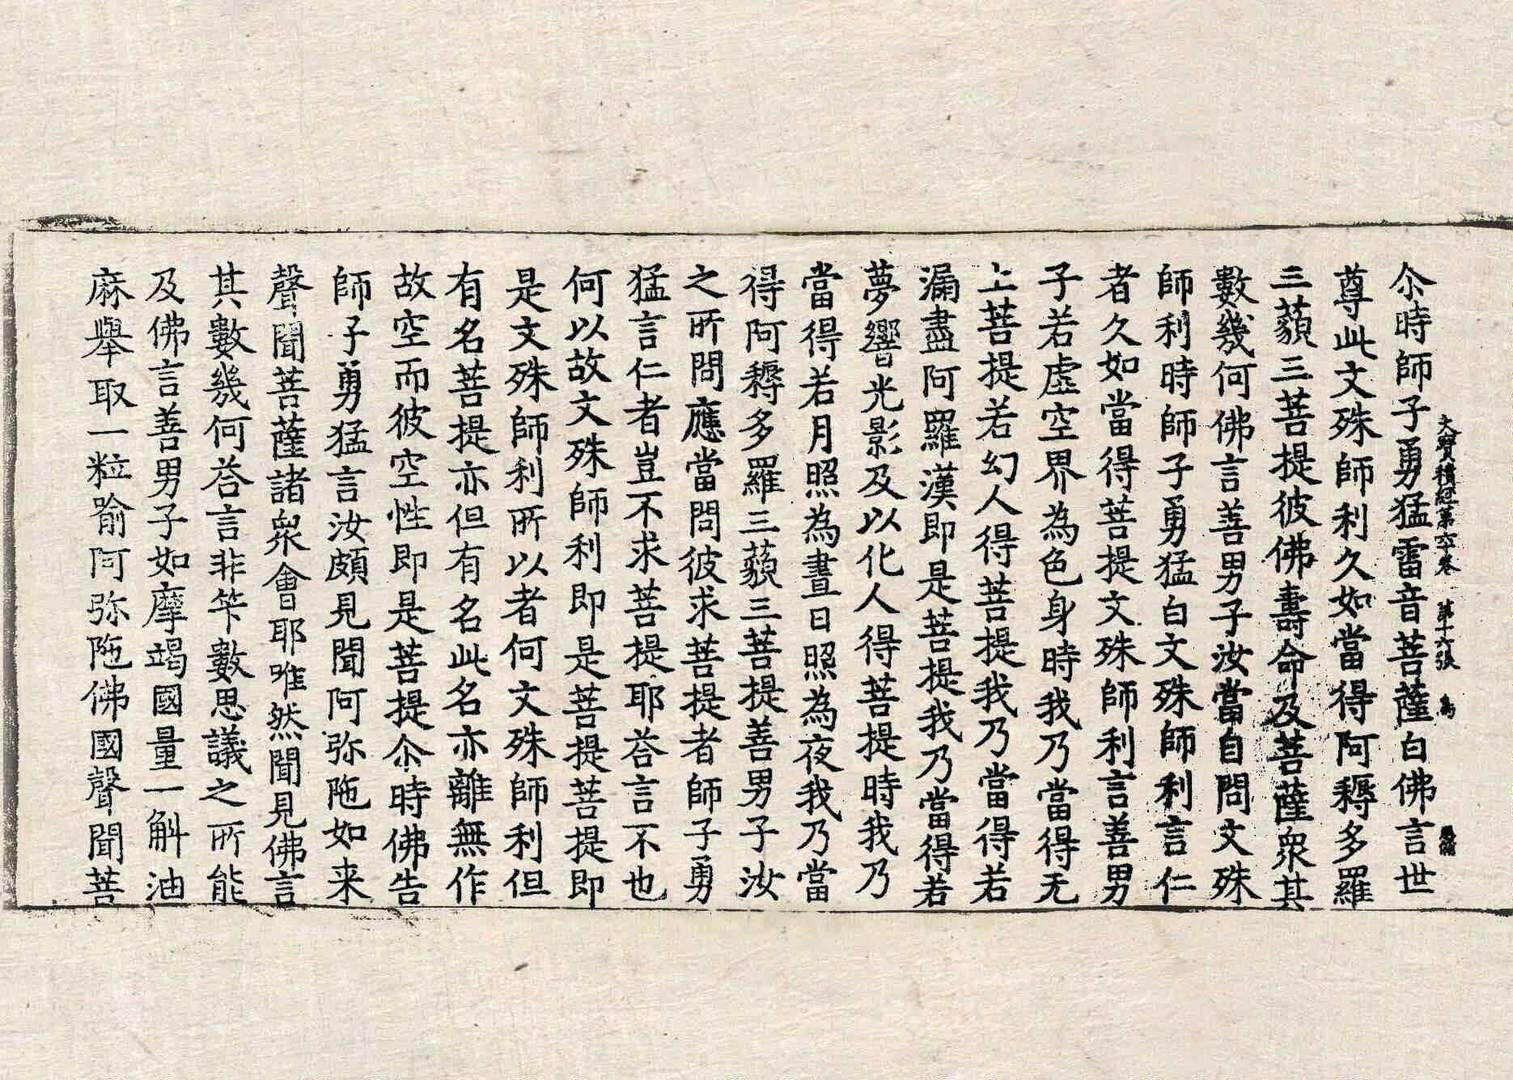 大寶積經第六十卷 第十六張 鳥
尒時師子勇猛雷音菩薩白佛言世
尊此文殊師利久如當得阿耨多羅
三藐三菩提彼佛壽命及菩薩衆其
數幾何佛言善男子汝當自問文殊
師利時師子勇猛白文殊師利言仁
者久如當得菩提文殊師利言善男
子若虛空界為色身時我乃當得无
上菩提若幻人得菩提我乃當得若
漏盡阿羅漢即是菩提我乃當得若
夢響光影及以化人得菩提時我乃
當得若月照為晝日照為夜我乃當
得阿耨多羅三藐三菩提善男子汝
之所問應當問彼求菩提者師子勇
猛言仁者豈不求菩提耶荅言不也
何以故文殊師利即是菩提菩提即
是文殊師利所以者何文殊師利但
有名菩提亦但有名此名亦離無作
故空而彼空性即是菩提尒時佛告
師子勇猛言汝頗見聞阿弥陁如来
聲聞菩薩諸衆會耶唯然聞見佛言
其數幾何荅言非筭數思議之所能
及佛言善男子如摩竭國量一斛油
麻舉取一粒喻阿弥陁佛國聲聞菩